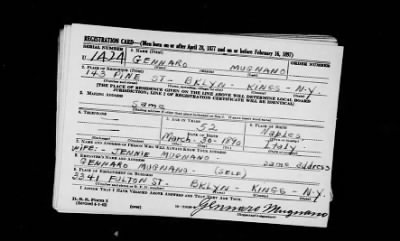 REGISTRATION CARD—(Men born on or after April 28, 1877 and on or before February 16, 1897)
SERIAL NUMBER
U 1424
1. NAME (Print)
GENNARO MUGNANO
(First) (Middle) (Last)
2. PLACE OF RESIDENCE (Print)
143 PINE ST- BKLYN - KINGS - N.Y.
[THE PLACE OF RESIDENCE GIVEN ON THE LINE ABOVE WILL DETERMINE LOCAL BOARD
JURISDICTION; LINE 2 OF REGISTRATION CERTIFICATE WILL BE IDENTICAL]
3. MAILING ADDRESS
Same
4. TELEPHONE
5. AGE IN YEARS
52
DATE OF BIRTH
March-30-1890
6. PLACE OF BIRTH
Naples
Italy
7. NAME AND ADDRESS OF PERSON WHO WILL ALWAYS KNOW YOUR ADDRESS
WIFE - JENNIE MUGNANO - same address
8. EMPLOYER'S NAME AND ADDRESS
GENNARO MUGNANO - (SELF)
9. PLACE OF EMPLOYMENT OR BUSINESS
3241 FULTON ST. BKLYN - KINGS - N.Y.
I AFFIRM THAT I HAVE VERIFIED ABOVE ANSWERS AND THAT THEY ARE TRUE.
D. S. S. Form 1
(Revised 4-1-42)
Gennaro Mugnano
(Registrant's signature)